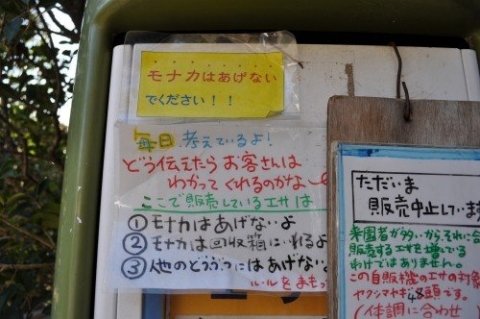 モナカはあげない
でください!!
毎日 考えているよ!
どう伝えたら お客さんは
わかってくれるのかな〜
ここで販売しているエサは
①モナカはあげないよ
②モナカは回収箱にいれるよ
③他のどうぶつにはあげない
ルールをまもっ
ただいま
販売中止しています
来園者が多いからそれに合
販売するエサを増している
わけではありません。
この自販機のエサの対象
ヤクシマヤギ48頭です。
(体調に合わせ